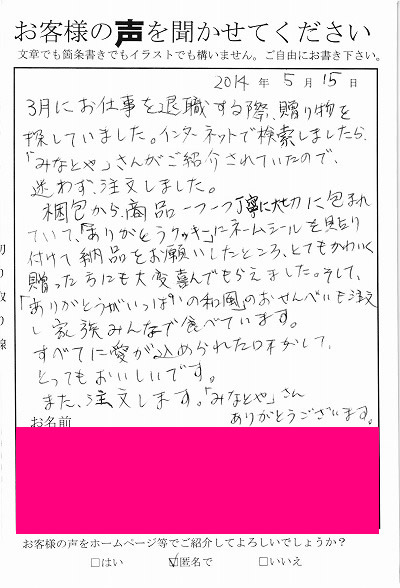 お客様の声を聞かせてください
文章でも箇条書きでもイラストでも構いません。ご自由にお書き下さい。
2014 年 5 月 15 日
3月にお仕事を退職する際、贈り物を
探していました。インターネットで検索しましたら、
「みなとや」さんがご紹介されていたので、
迷わず、注文しました。
梱包から、商品一つ一つ丁寧に大切に包まれ
ていて、「ありがとうクッキー」にネームシールを貼り
付けて納品をお願いしたところ、とてもかわいく
贈った方にも大変喜んでもらえました。そして、
「ありがとうがいっぱいの和風」のおせんべいも注文
し家族みんなで食べています。
すべてに愛が込められた味がして、
とってもおいしいです。
また、注文します。「みなとや」さん
ありがとうございます。
お名前
切り取り線
お客様の声をホームページ等でご紹介してよろしいでしょうか?
□はい ☑匿名で □いいえ